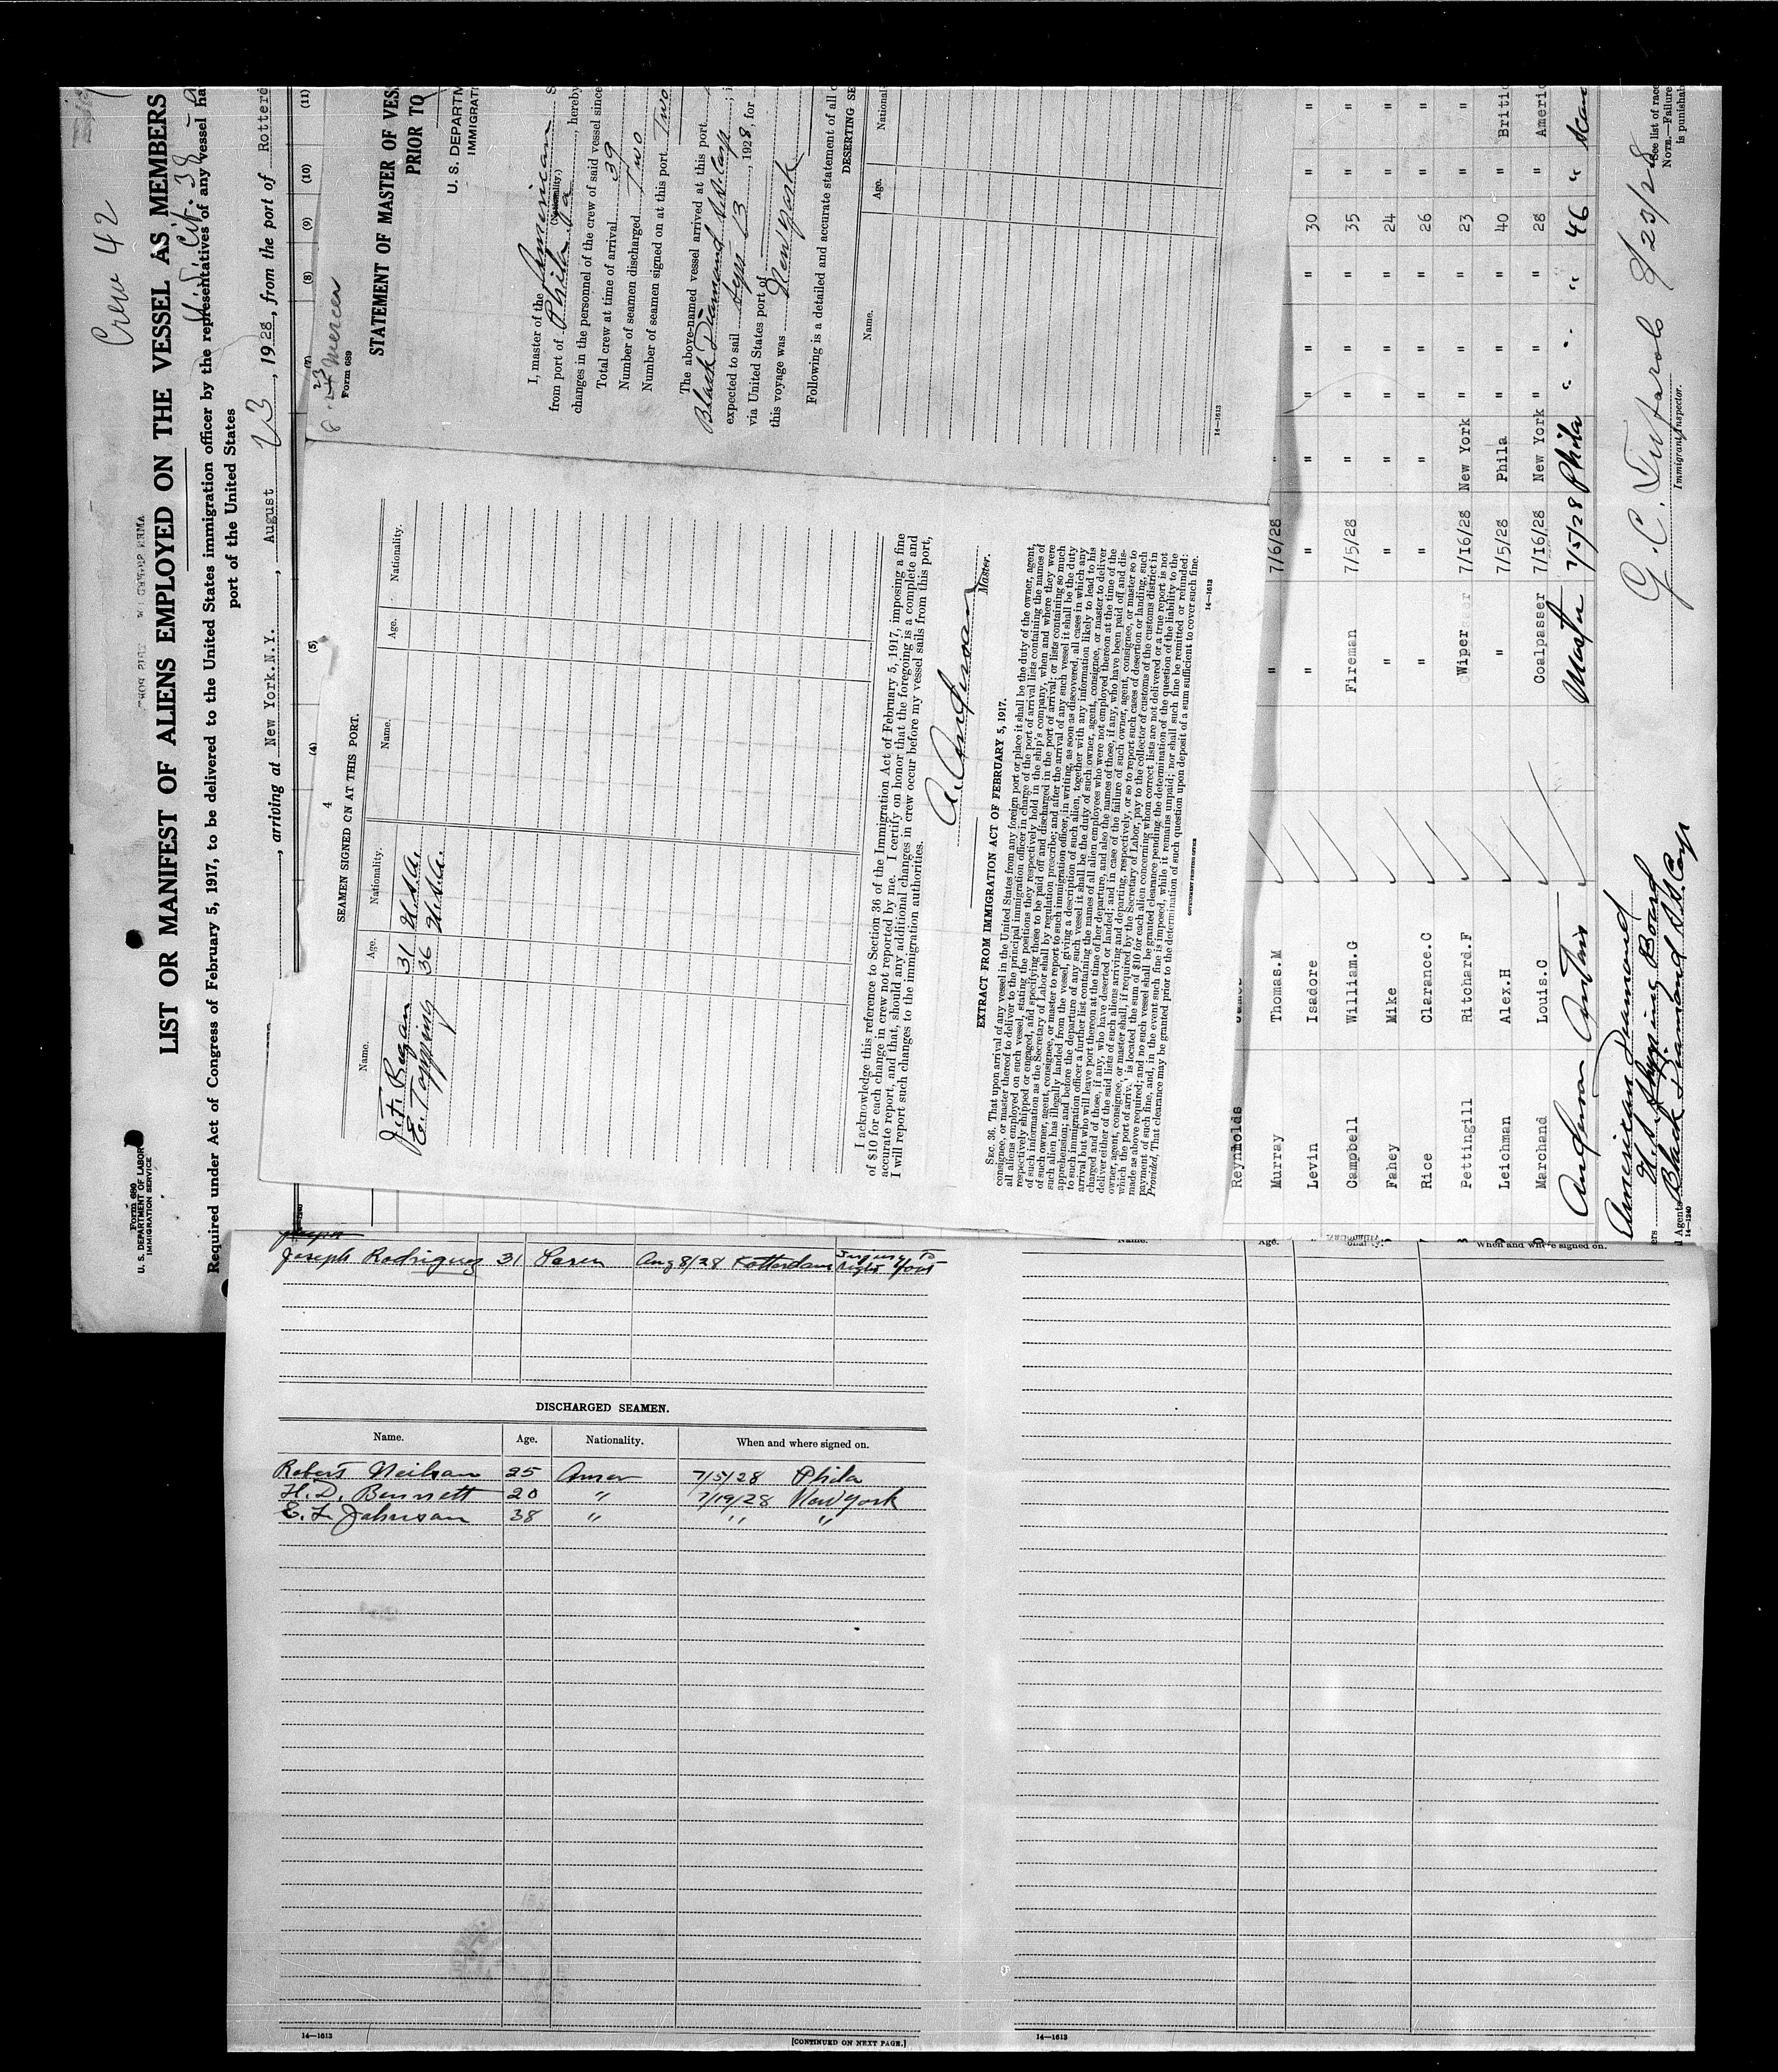 Crew 42
U. S. Cit. 38
Form 680
U. S. DEPARTMENT OF LABOR
IMMIGRATION SERVICE
LIST OR MANIFEST OF ALIENS EMPLOYED ON THE VESSEL AS MEMBERS
Required under Act of Congress of February 5, 1917, to be delivered to the United States immigration officer by the representatives of any vessel ha
port of the United States
, arriving at New York.N.Y. , August 23, 1928, from the port of Rotterd
(4) (5) (8) (9) (10) (11)
Form 689
STATEMENT OF MASTER OF VES
PRIOR TO
U. S. DEPARTM
IMMIGRATI
I, master of the American S
(Nationality.)
from port of Phila Pa , hereby
changes in the personnel of the crew of said vessel since
Total crew at time of arrival 39
Number of seamen discharged Two
Number of seamen signed on at this port Two
The above-named vessel arrived at this port ; i
Black Diamond S.S. Corp
expected to sail 13 , 1928, for
via United States port of
this voyage was New York
Following is a detailed and accurate statement of all c
DESERTING SE
Name. Age. National
14—1613
4
SEAMEN SIGNED ON AT THIS PORT.
Name. Age. Nationality. Name. Age. Nationality.
J. F. Regan 31 U.S.A.
E. Topping 36 U.S.A.
I acknowledge this reference to Section 36 of the Immigration Act of February 5, 1917, imposing a fine
of $10 for each change in crew not reported by me. I certify on honor that the foregoing is a complete and
accurate report, and that, should any additional changes in crew occur before my vessel sails from this port,
I will report such changes to the immigration authorities.
A. Anderson
Master.
EXTRACT FROM IMMIGRATION ACT OF FEBRUARY 5, 1917.
SEC. 36. That upon arrival of any vessel in the United States from any foreign port or place it shall be the duty of the owner, agent,
consignee, or master thereof to deliver to the principal immigration officer in charge of the port of arrival lists containing the names of
all aliens employed on such vessel, stating the positions they respectively hold in the ship's company, when and where they were
respectively shipped or engaged, and specifying those to be paid off and discharged in the port of arrival; or lists containing so much
of such information as the Secretary of Labor shall by regulation prescribe; and after the arrival of any such vessel it shall be the duty
of such owner, agent, consignee, or master to report to such immigration officer, in writing, as soon as discovered, all cases in which any
such alien has illegally landed from the vessel, giving a description of such alien, together with any information likely to lead to his
apprehension; and before the departure of any such vessel it shall be the duty of such owner, agent, consignee, or master to deliver
to such immigration officer a further list containing the names of all alien employees who were not employed thereon at the time of the
arrival but who will leave port thereon at the time of her departure, and also the names of those, if any, who have been paid off and dis-
charged and of those, if any, who have deserted or landed; and in case of the failure of such owner, agent, consignee, or master so to
deliver either of the said lists of such aliens arriving and departing, respectively, or so to report such cases of desertion or landing, such
owner, agent, consignee, or master shall, if required by the Secretary of Labor, pay to the collector of customs of the customs district in
which the port of arrival is located the sum of $10 for each alien concerning whom correct lists are not delivered or a true report is not
made as above required; and no such vessel shall be granted clearance pending the determination of the question of the liability to the
payment of such fine, and, in the event such fine is imposed, while it remains unpaid; nor shall such fine be remitted or refunded:
Provided, That clearance may be granted prior to the determination of such question upon deposit of a sum sufficient to cover such fine.
GOVERNMENT PRINTING OFFICE
14—1613
Reynholds James
Murray Thomas.M " 7/6/28 "
Levin Isadore " " " " " " 30 " "
Campbell William.G Fireman 7/5/28 " " " " 35 " "
Fahey Mike " " " " " " 24 " "
Rice Clarance.C " " " " " " 26 " "
Pettingill Ritchard.F Wiper 7/16/28 New York " " " 23 " "
Leichman Alex.H " 7/5/28 Phila " " " 40 " Britis
Marchand Louis.C Coalpasser 7/16/28 New York " " " 28 " Americ
Anderson Anton Master 7/5/28 Phila " " " 46 " Scan
American Diamond
U.S. Shipping Board
Black Diamond S.S. Corp
14—1240
8/23/28
Immigrant Inspector.
*See list of race
NOTE.—Failure
is punishab
Joseph Rodriguez 31 Aug 8/28 Rotterdam Injury to right foot
DISCHARGED SEAMEN.
Name. Age. Nationality. When and where signed on.
Robert Neilsan 25 Amer 7/5/28 Phila
H. D. Bennett 20 " 7/19/28 New York
E. L. Johnson 38 " " "
14—1613
[CONTINUED ON NEXT PAGE.]
Name. Age. When and where signed on.
14—1613